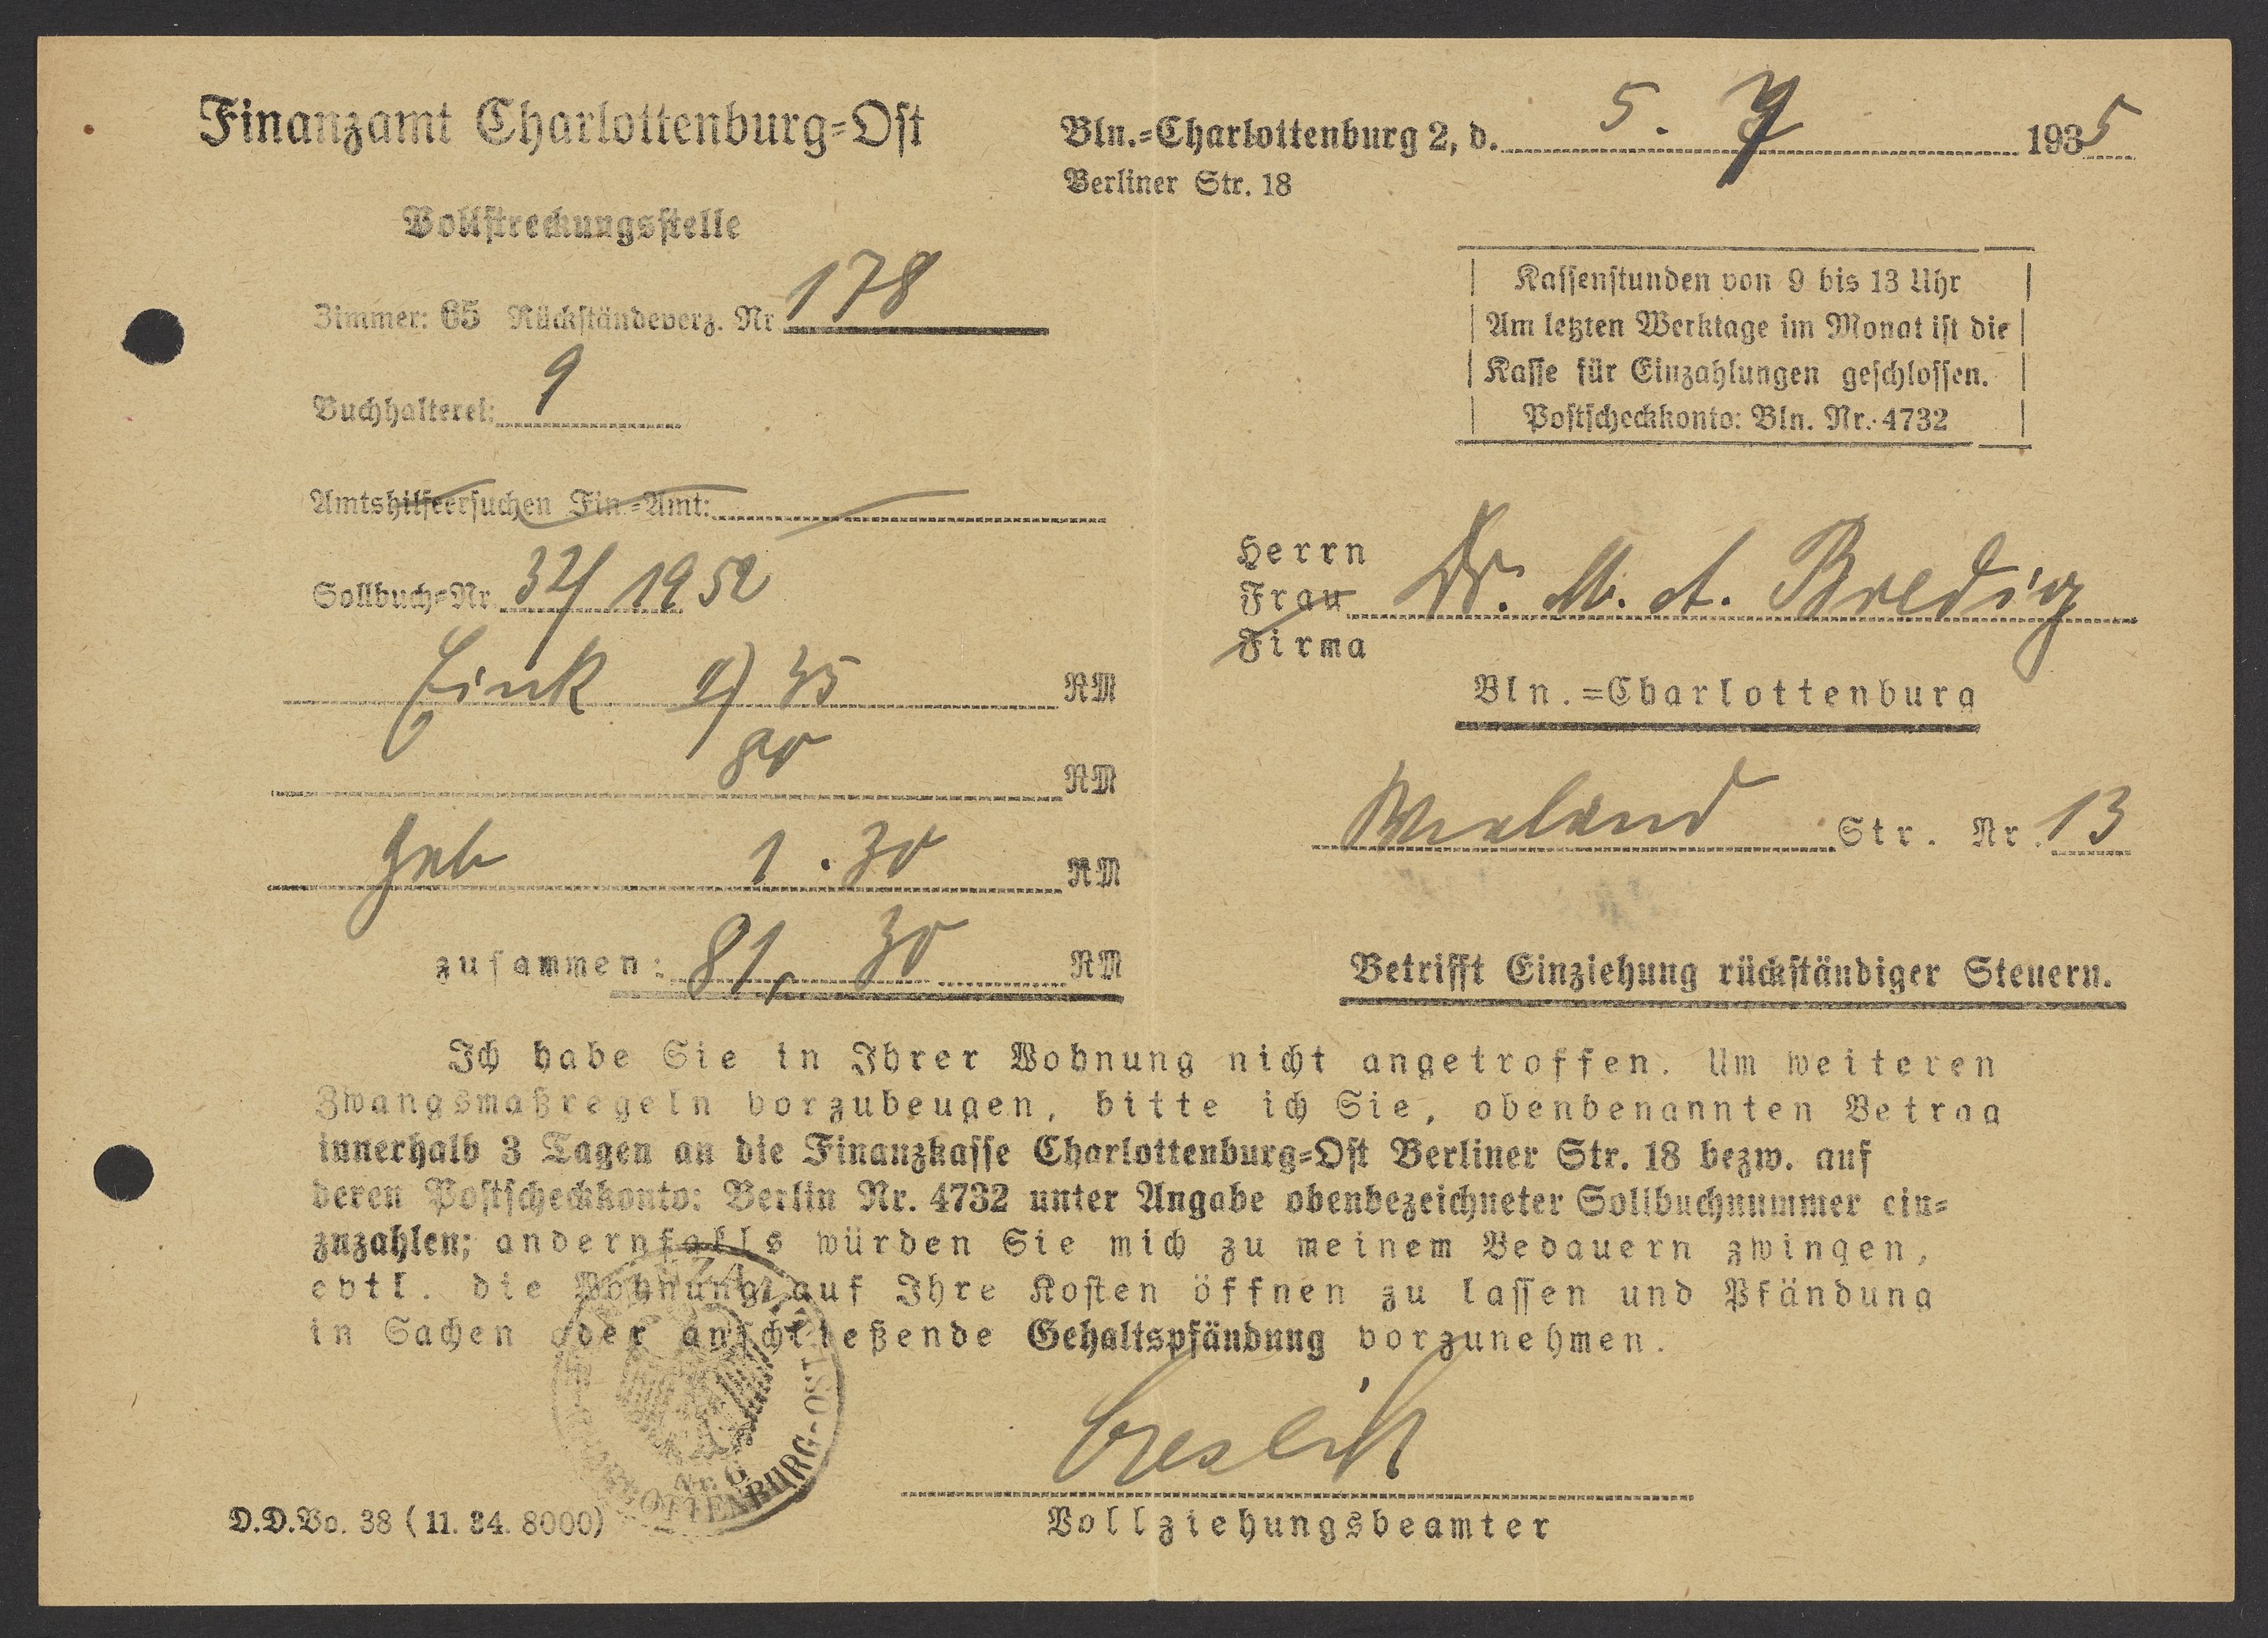 Finanzamt Charlottenburg=Ost
Vollstreckungsstelle
Zimmer: 65 Rückständeverz. Nr 178
Buchhalterei: 9
Amtshilfeersuchen Fin.=Amt:
Sollbuch=Nr. 32/1952
Eink 35 RM
80 RM
Geb 1.30 RM
zusammen: 81,30 RM
Bln.=Charlottenburg 2, d. 5. 7 1935
Berliner Str. 18
Kassenstunden von 9 bis 13 Uhr
Am letzten Werktage im Monat ist die
Kasse für Einzahlungen geschlossen.
Postscheckkonto: Bln. Nr. 4732
Herrn
Frau Dr. M. A. Bredig
Firma
Bln.=Charlottenburg
Wieland Str. Nr. 13
Betrifft Einziehung rückständiger Steuern.
Ich habe Sie in Ihrer Wohnung nicht angetroffen. Um weiteren
Zwangsmaßregeln vorzubeugen, bitte ich Sie, obenbenannten Betrag
innerhalb 3 Tagen an die Finanzkasse Charlottenburg=Ost Berliner Str. 18 bezw. auf
deren Postscheckkonto: Berlin Nr. 4732 unter Angabe obenbezeichneter Sollbuchnummer ein=
zuzahlen; andernfalls würden Sie mich zu meinem Bedauern zwingen,
evtl. die Wohnung auf Ihre Kosten öffnen zu lassen und Pfändung
in Sachen oder anschließende Gehaltspfändung vorzunehmen.
Nr. 6
CHARLOTTENBURG-OST
Vollziehungsbeamter
D.D.Vo. 38 (11. 34. 8000)